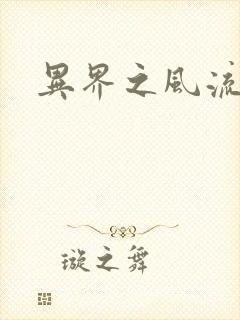 異界之風流
璇之舞